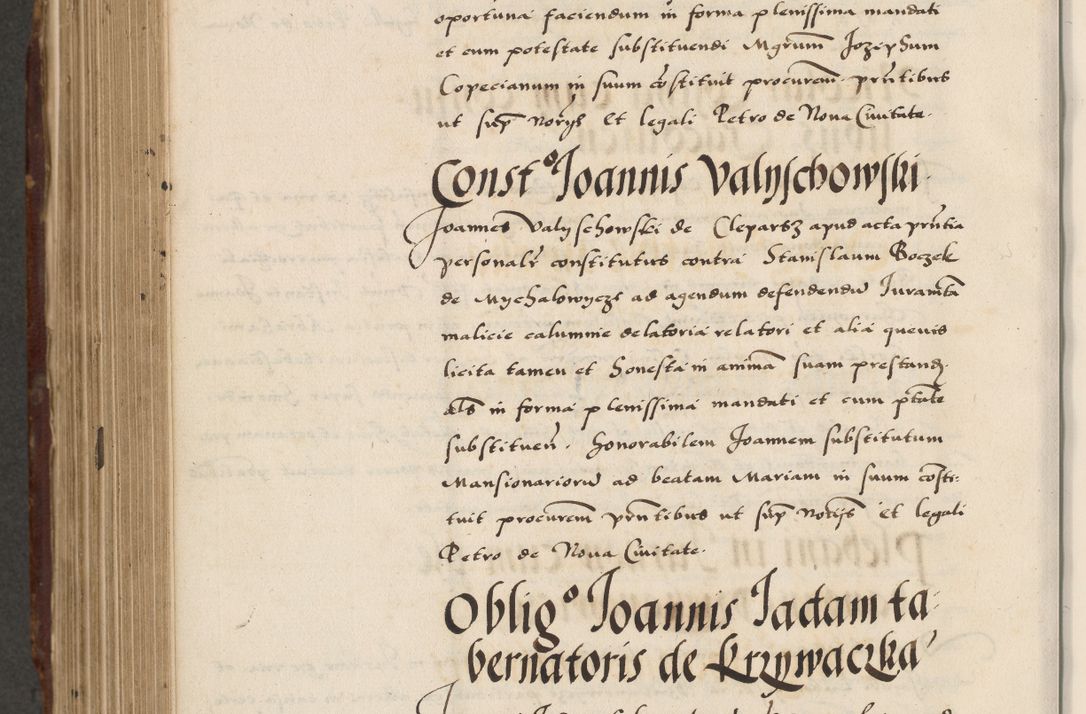 oportuna faciendum in forma plenissima mandati
et cum potestate substituendi Mgrum Jozephum
Copecianum in suum cōstituit procurem. prn̄tibus
ut sup̄ Norijs Et legali Petro de Nova Civitate.
Const⁰ Joannis Valyschowski.
Joannes Valyschowski de Clepartz apud acta prn̄tia
personalr̄ constitutus contra Stanislaum Boczek
de Mychalowycze ad agendum defendendū Juramt̄a
malicie calumnie delatoria relatori et alia quevis
licita tamen et honesta in animā suam prestand.
als̄ in forma plenissima mandati et cum ptātē
substituen̄. honorabilem Joannem substitutum
Mansionariorū ad beatam Mariam in suum cōsti-
tuit procurem prn̄tibus ut sup̄ Norijs Et legali
Petro de Nova Civitate.
Oblig⁰ Joannis Jactam ta
bernatoris de Krzywaczka